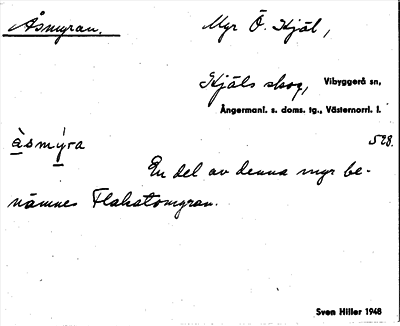 Åsmyran. Myr Ö. Kjäl,
Kjäls skog, Vibyggerå sn,
Ångermanl. s. doms. tg., Västernorrl. l.
åsmýra 528.
En del av denna myr be-
nämnes Flakatomyran.
Sven Hiller 1948